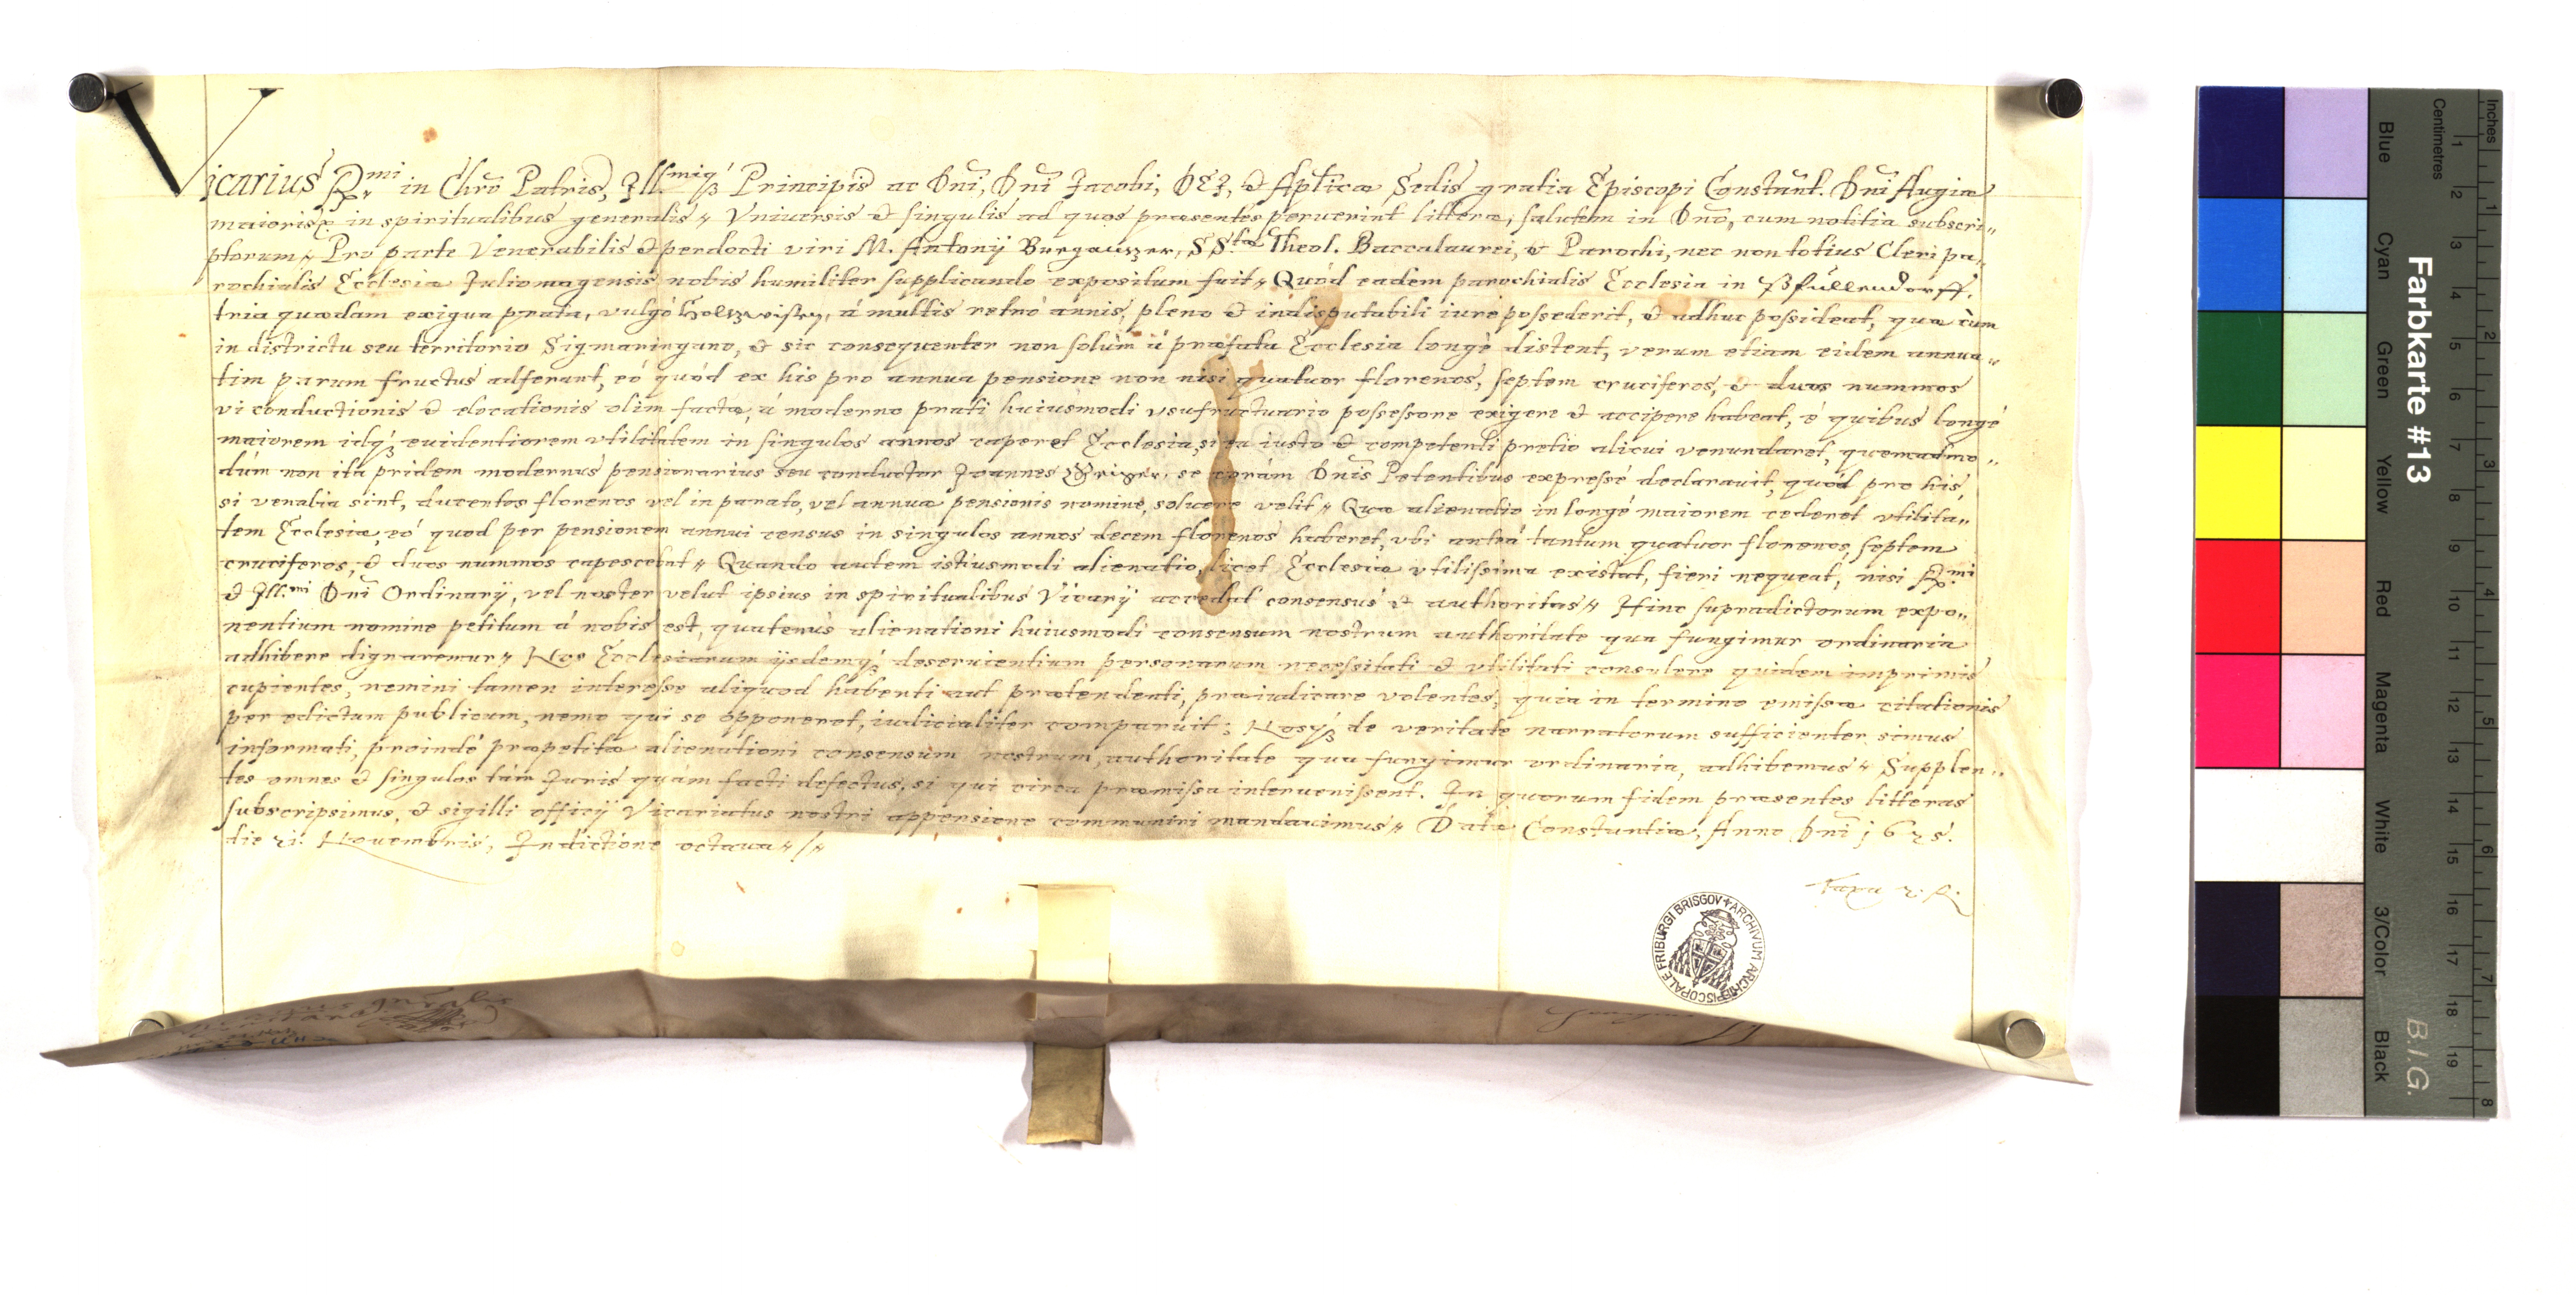 Vicarius Rmi in Chro Patris, Illsmiq́ꝫ Principis ac Dni, Dni Jacobi, DEI, & Aplicæ Sedis gratia Episcopi Constant. Dni Augiæ
maioris &c. in spiritualibus generalis〃 Vniuersis & singulis ad quos præsentes peruenint litteræ, salutem in Dno, cum notitia subscri〃
ptorum〃 Pro parte Venerabilis & perdocti viri M. Antonij Burgauer, SS.tæ Theol. Baccalaurei, & Parochi, nec non totius Cleri pa〃
rochialis Ecclesiæ Juliomagensis nobis humiliter supplicando expositum fuit〃 Quòd eadem parochialis Ecclesia in Pfullendorff,
tria quædam exigua prata, vulgò Holtzwisen, à multis retrò annis, pleno & indisputabili iure possederit, & adhuc possideat, quæ cùm
in districtu seu territorio Sigmaringano, & sic consequenter non solùm à præfata Ecclesia longè distent, verum etiam eidem annua〃
tim parum fructus adferant, eò quòd ex his pro annua pensione non nisi quatuor florenos, septem cruciferos, & duos nummos
vi conductionis & elocationis olim factæ, à moderno prati huiusmodi vsufructuario possessore exigere & accipere habeat, è quibus longè
maiorem idq́ꝫ euidentiorem vtilitatem in singulos annos caperet Ecclesia, si ea iusto & competenti pretio alicui venundaret, quemadmo〃
dùm non ita pridem modernus pensionarius seu conductor Joannes se coràm Dnis Petentibus expressè declarauit, quòd pro his,
si venalia sint, ducentos florenos vel in parato, vel annuæ pensionis nomine, soluere velit〃 Quæ alienatio in longè maiorem cederet vtilita〃
tem Ecclesiæ, eò quod per pensionem annui census in singulos annos decem florenos haberet, vbi anteà tantum quatuor florenos, septem
cruciferos, & duos nummos capescebat〃 Quando autem istiusmodi alienatio, licet Ecclesiæ vtilissima existat, fieri nequeat, nisi Rmi
& Ill.mi Dni Ordinarij, vel noster velut ipsius in spiritualibus Vicarij accedat consensus & authoritas〃 Hinc supradictorum expo〃
nentium nomine petitum à nobis est, quatenùs alienationi huiusmodi consensum nostrum authoritate qua fungimur ordinaria
adhibere dignaremur〃 Nos Ecclesiarum ijsdemq́ꝫ deseruientium personarum necessitati & vtilitati consulere quidem imprimis
cupientes, nemini tamen interesse aliquod habenti aut prætendenti, præiudicare volentes, quia in termino emissæ citationis
per edictum publicum, nemo qui se opponeret, iudicialiter comparuit; Nosq́ꝫ de veritate narratorum sufficienter simus
informati, proindè præpetitæ alienationi consensum nostrum, authoritate qua fungimur ordinaria, adhibemus〃 Supplen〃
tes omnes & singulos tàm Juris quàm facti defectus, si qui circa præmissa interuenissent. In quorum fidem præsentes litteras
subscripsimus, & sigilli officij Vicariatus nostri appensione communiri mandauimus〃 Datæ Constantiæ, Anno Dni 1625.
die 21. Nouembris, Indictione octaua〃/〃
ARCHIVUM ARCHIEPISCOPALE FRIBURGI BRISGOV
Farbkarte #13
B.I.G.
Inches
Centimetres
1 2 3 4 5 6 7 8
1 2 3 4 5 6 7 8 9 10 11 12 13 14 15 16 17 18 19
Blue
Cyan
Green
Yellow
Red
Magenta
White
3/Color
Black